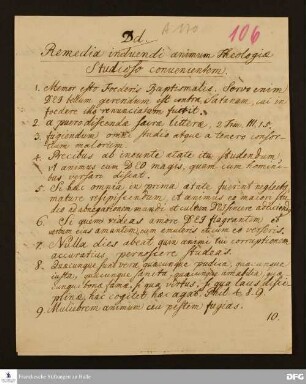 Dd.
106
Remedia induendi animum Theologiæ
Studioso convenientem.
1. Memor esto Foederis Baptismalis. Servo enim
DEI bellum gerendum est contra Satanam, cui in
foedere renunciavimus
2. a puero discenda sacra litteræ. 2 Tim. III, 15.
3. fugiendum omni studio atque a tenero consor-
tium malorum.
4. Precibus ab ineunte ætate ita studendum
ut animus cum DEO magis, quam cum homini-
bus versari discat.
5. Si hæc omnia in prima ætate fuerint neglecta,
mature resipiscendum, et animus eo majori stu-
dio
6. Si quem videas amore DEI flagrantem et
virtutum ejus amantem, cum
7. Nulla dies abeat quin animi tui corruptionem
accuratius perspicere studeas.
8. Quæcunque sunt vera, quæcunque pudica, quæcunque
justa, quæcunque sancta, quæcunque amabilia, quæ-
cunque bonæ famæ, si qua virtus, si qua laus disci-
plinæ, hæc cogitet hæc agat. Phil. 4. 8. 9.
9. Mulierem animum ceu pestem fugias.
10.
Franckesche Stiftungen zu Halle
DFG